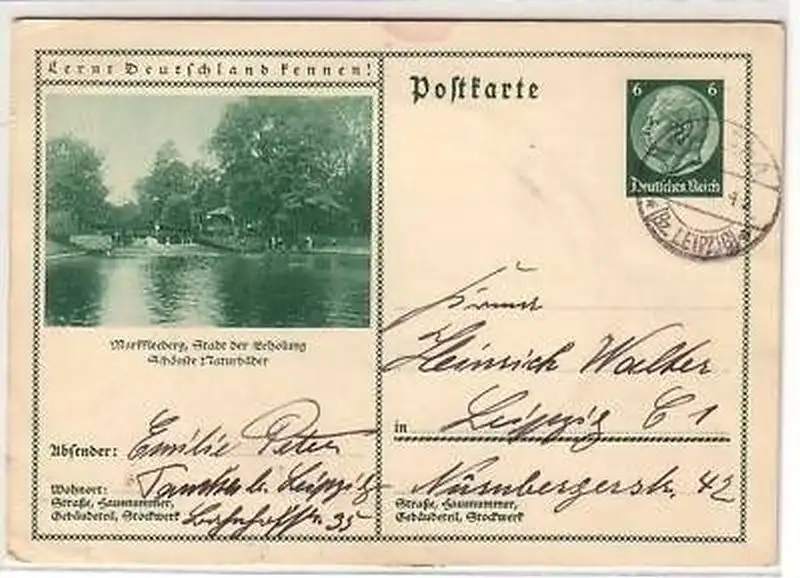 Lernt Deutschland kennen!
Markkleeberg, Stadt der Erholung
Schönste Naturbäder
Absender: Emilie Peter
Wohnort: Taucha b. Leipzig
Straße, Hausnummer,
Gebäudeteil, Stockwerk
Bahnhofstr. 35
Postkarte
6 6
Deutsches Reich
(Bz. LEIPZIG)
Firma
Heinrich Walter
in Leipzig C 1
Nürnbergerstr. 42
Straße, Hausnummer,
Gebäudeteil, Stockwerk